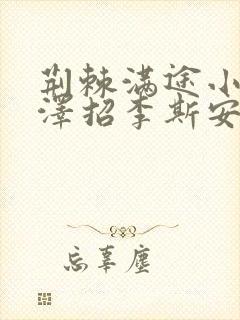 荆棘满途小
泽招李斯安
忘辜尘